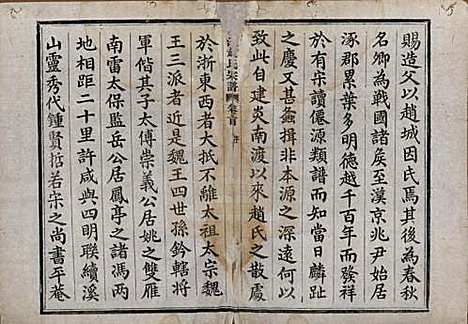 賜造父以趙城因氏焉其後為春秋
名卿為戰國諸矦至漢京兆尹始居
涿郡累葉多明德越千百年而發祥
於有宋讀僊源類譜而知當日麟趾
之慶又甚螽揖非本源之深遠何以
致此自建炎南渡以來趙氏之散處
趙氏宗譜 卷首 序
於浙東西者大抵不離太祖太宗魏
王三派者近是魏王四世孫鈐轄將
軍偕其子太傅崇義公居姚之雙雁
南雷太保監岳公居鳳亭之諸馮兩
地相距二十里許咸與四明聯續溪
山靈秀代鍾賢哲若宋之尚書平菴